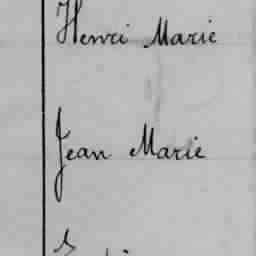 Henri Marie
Jean Marie